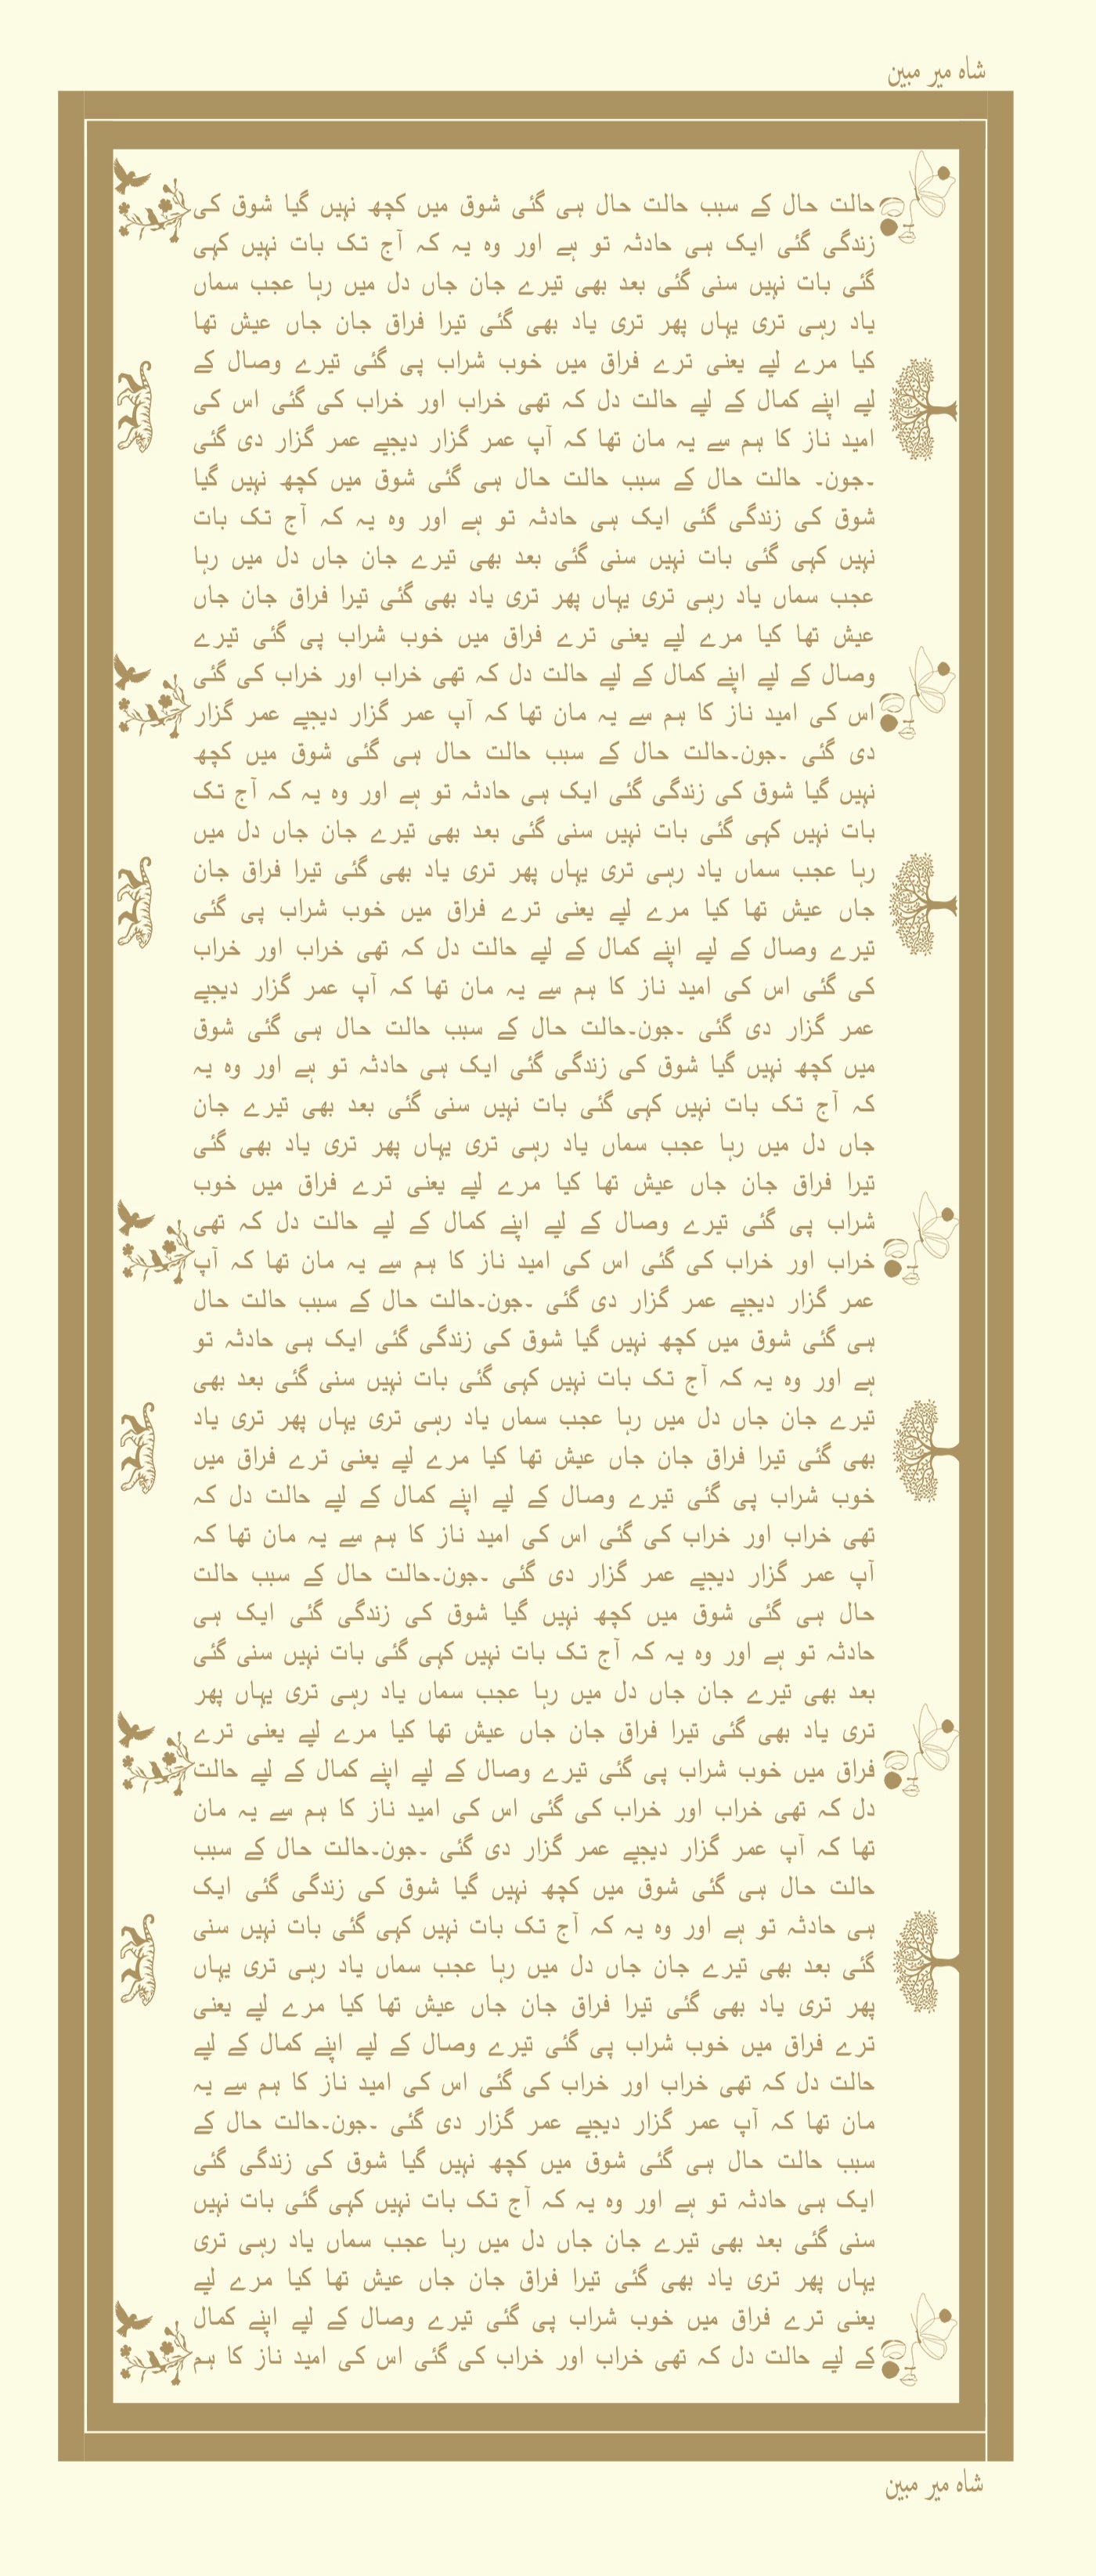 شاہ میر مبین
حالت حال کے سبب حالت حال ہی گئی شوق میں کچھ نہیں گیا شوق کی
زندگی گئی ایک ہی حادثہ تو ہے اور وہ یہ کہ آج تک بات نہیں کہی
گئی بات نہیں سنی گئی بعد بھی تیرے جان جاں دل میں رہا عجب سماں
یاد رہی تری یہاں پھر تری یاد بھی گئی تیرا فراق جان جاں عیش تھا
کیا مرے لیے یعنی ترے فراق میں خوب شراب پی گئی تیرے وصال کے
لیے اپنے کمال کے لیے حالت دل کہ تھی خراب اور خراب کی گئی اس کی
امید ناز کا ہم سے یہ مان تھا کہ آپ عمر گزار دیجیے عمر گزار دی گئی
۔جون۔ حالت حال کے سبب حالت حال ہی گئی شوق میں کچھ نہیں گیا
شوق کی زندگی گئی ایک ہی حادثہ تو ہے اور وہ یہ کہ آج تک بات
نہیں کہی گئی بات نہیں سنی گئی بعد بھی تیرے جان جاں دل میں رہا
عجب سماں یاد رہی تری یہاں پھر تری یاد بھی گئی تیرا فراق جان جاں
عیش تھا کیا مرے لیے یعنی ترے فراق میں خوب شراب پی گئی تیرے
وصال کے لیے اپنے کمال کے لیے حالت دل کہ تھی خراب اور خراب کی گئی
اس کی امید ناز کا ہم سے یہ مان تھا کہ آپ عمر گزار دیجیے عمر گزار
دی گئی ۔جون۔حالت حال کے سبب حالت حال ہی گئی شوق میں کچھ
نہیں گیا شوق کی زندگی گئی ایک ہی حادثہ تو ہے اور وہ یہ کہ آج تک
بات نہیں کہی گئی بات نہیں سنی گئی بعد بھی تیرے جان جاں دل میں
رہا عجب سماں یاد رہی تری یہاں پھر تری یاد بھی گئی تیرا فراق جان
جاں عیش تھا کیا مرے لیے یعنی ترے فراق میں خوب شراب پی گئی
تیرے وصال کے لیے اپنے کمال کے لیے حالت دل کہ تھی خراب اور خراب
کی گئی اس کی امید ناز کا ہم سے یہ مان تھا کہ آپ عمر گزار دیجیے
عمر گزار دی گئی ۔جون۔حالت حال کے سبب حالت حال ہی گئی شوق
میں کچھ نہیں گیا شوق کی زندگی گئی ایک ہی حادثہ تو ہے اور وہ یہ
کہ آج تک بات نہیں کہی گئی بات نہیں سنی گئی بعد بھی تیرے جان
جاں دل میں رہا عجب سماں یاد رہی تری یہاں پھر تری یاد بھی گئی
تیرا فراق جان جاں عیش تھا کیا مرے لیے یعنی ترے فراق میں خوب
شراب پی گئی تیرے وصال کے لیے اپنے کمال کے لیے حالت دل کہ تھی
خراب اور خراب کی گئی اس کی امید ناز کا ہم سے یہ مان تھا کہ آپ
عمر گزار دیجیے عمر گزار دی گئی ۔جون۔حالت حال کے سبب حالت حال
ہی گئی شوق میں کچھ نہیں گیا شوق کی زندگی گئی ایک ہی حادثہ تو
ہے اور وہ یہ کہ آج تک بات نہیں کہی گئی بات نہیں سنی گئی بعد بھی
تیرے جان جاں دل میں رہا عجب سماں یاد رہی تری یہاں پھر تری یاد
بھی گئی تیرا فراق جان جاں عیش تھا کیا مرے لیے یعنی ترے فراق میں
خوب شراب پی گئی تیرے وصال کے لیے اپنے کمال کے لیے حالت دل کہ
تھی خراب اور خراب کی گئی اس کی امید ناز کا ہم سے یہ مان تھا کہ
آپ عمر گزار دیجیے عمر گزار دی گئی ۔جون۔حالت حال کے سبب حالت
حال ہی گئی شوق میں کچھ نہیں گیا شوق کی زندگی گئی ایک ہی
حادثہ تو ہے اور وہ یہ کہ آج تک بات نہیں کہی گئی بات نہیں سنی گئی
بعد بھی تیرے جان جاں دل میں رہا عجب سماں یاد رہی تری یہاں پھر
تری یاد بھی گئی تیرا فراق جان جاں عیش تھا کیا مرے لیے یعنی ترے
فراق میں خوب شراب پی گئی تیرے وصال کے لیے اپنے کمال کے لیے حالت
دل کہ تھی خراب اور خراب کی گئی اس کی امید ناز کا ہم سے یہ مان
تھا کہ آپ عمر گزار دیجیے عمر گزار دی گئی ۔جون۔حالت حال کے سبب
حالت حال ہی گئی شوق میں کچھ نہیں گیا شوق کی زندگی گئی ایک
ہی حادثہ تو ہے اور وہ یہ کہ آج تک بات نہیں کہی گئی بات نہیں سنی
گئی بعد بھی تیرے جان جاں دل میں رہا عجب سماں یاد رہی تری یہاں
پھر تری یاد بھی گئی تیرا فراق جان جاں عیش تھا کیا مرے لیے یعنی
ترے فراق میں خوب شراب پی گئی تیرے وصال کے لیے اپنے کمال کے لیے
حالت دل کہ تھی خراب اور خراب کی گئی اس کی امید ناز کا ہم سے یہ
مان تھا کہ آپ عمر گزار دیجیے عمر گزار دی گئی ۔جون۔حالت حال کے
سبب حالت حال ہی گئی شوق میں کچھ نہیں گیا شوق کی زندگی گئی
ایک ہی حادثہ تو ہے اور وہ یہ کہ آج تک بات نہیں کہی گئی بات نہیں
سنی گئی بعد بھی تیرے جان جاں دل میں رہا عجب سماں یاد رہی تری
یہاں پھر تری یاد بھی گئی تیرا فراق جان جاں عیش تھا کیا مرے لیے
یعنی ترے فراق میں خوب شراب پی گئی تیرے وصال کے لیے اپنے کمال
کے لیے حالت دل کہ تھی خراب اور خراب کی گئی اس کی امید ناز کا ہم
شاہ میر مبین